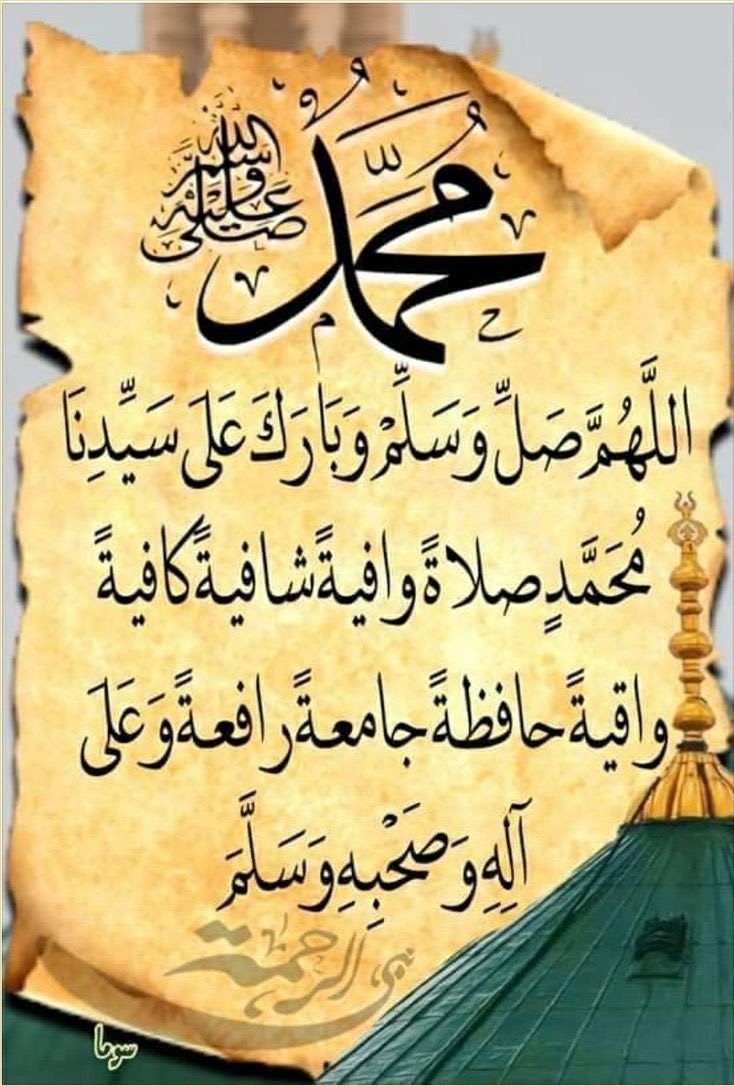 مُحَمَّدٌ
صلى الله عليه وسلم
اللَّهُمَّ صَلِّ وَسَلِّمْ وَبَارَكَ عَلَى سَيِّدِنَا
مُحَمَّدٍ صلاةً وافيةً شافيةً كافيةً
واقيةً حافظةً جامعةً رافعةً وَعَلَى
آلِهِ وَصَحْبِهِ وَسَلَّمَ
نبي الرحمة
سوما